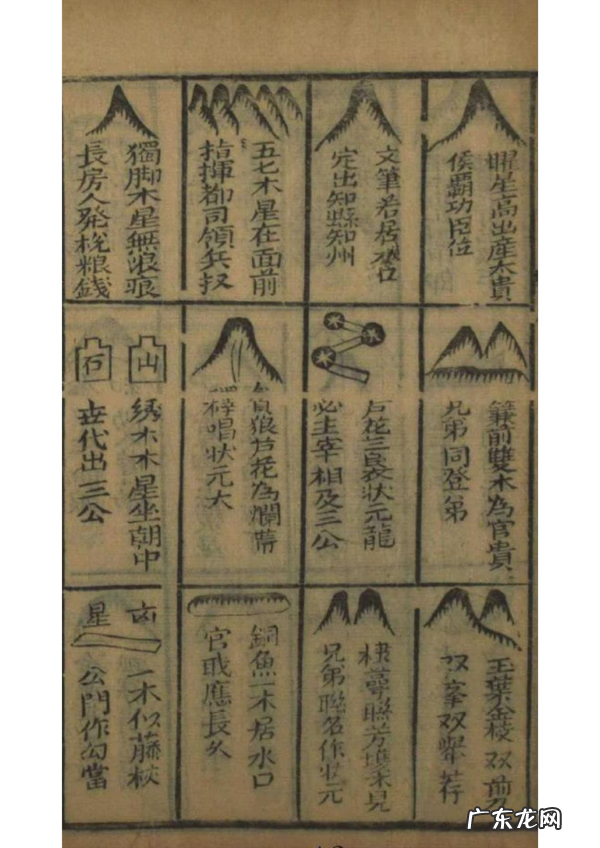 曜星高出産大貴
侯覇功臣位
文筆若居水口
定出知縣知州
五七木星在面前
指揮都司領兵权
獨脚木星無浪痕
長房人発稅粮錢
前雙木為官貴
兄弟同登第
芦花三裊状元龍
必主宰相及三公
貪狼芦花為爛幕
唱状元大
山
石
绣木木星坐朝中
世代出三公
玉葉金枝双前
双峯双舉荐
棣萼聯芳
兄弟聯名作状元
銅魚一木居水口
官戝應長久
星
一木似藤
公門作勾當
广东龙网